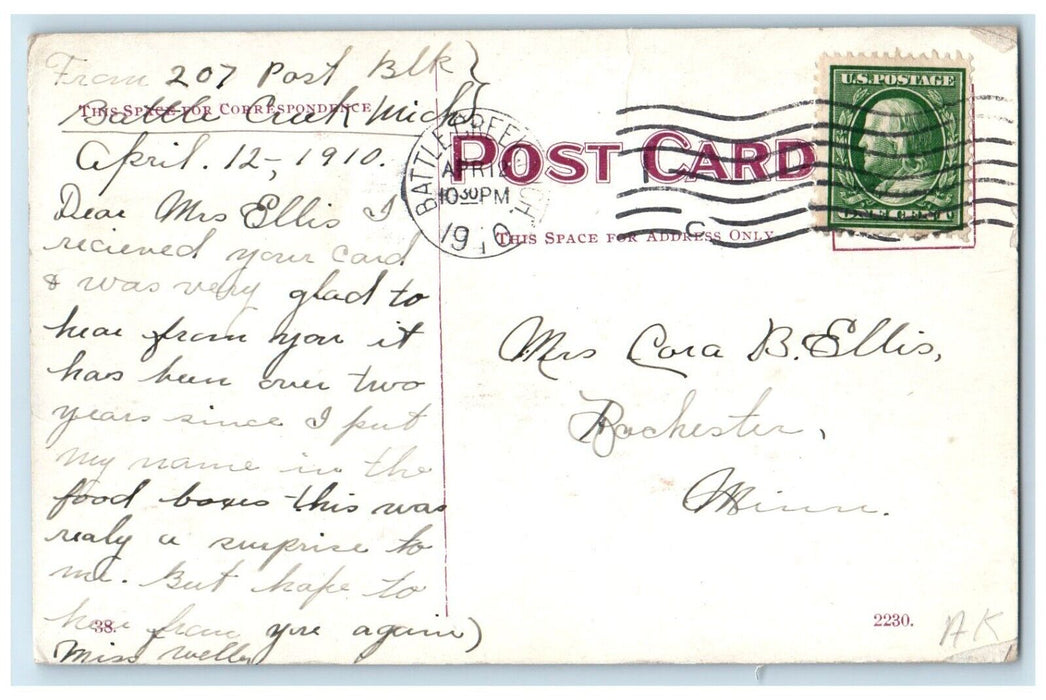 From 207 Post Blk
THIS SPACE FOR CORRESPONDENCE
Battle Creek Mich
April. 12-, 1910.
Dear Mrs Ellis I
recieved your card
& was very glad to
hear from you it
has been over two
years since I put
my name in the
food boxes this was
realy a surprise to
me. But hope to
hear from you again)
Miss Weller
38.
POST CARD
THIS SPACE FOR ADDRESS ONLY
BATTLE CREEK MICH.
APR 12
10 30 PM
1910
C
U.S. POSTAGE
Mrs Cora B. Ellis,
Rochester,
Minn.
2230.
AK